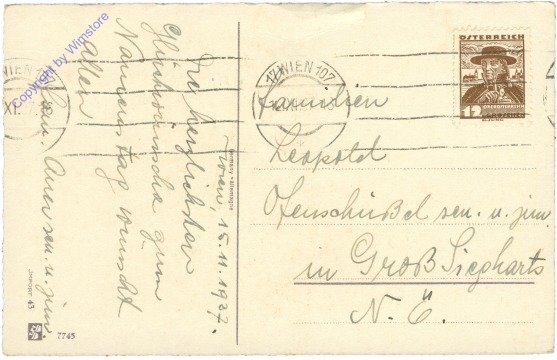 Wien, 15.11.1937.
Die herzlichsten
Glückwünsche zum
Namenstag wünscht
allen
Anna sen. u. jun.
Germany - Allemagne
IMPORT 43
7745
Copyright by Wimstore
WIEN
XI
17 WIEN 107
ÖSTERREICH
12
OBERÖSTERREICH
Familien
Leopold
Ofenschüßel sen. u. jun.
in Groß Siegharts
N. Ö.